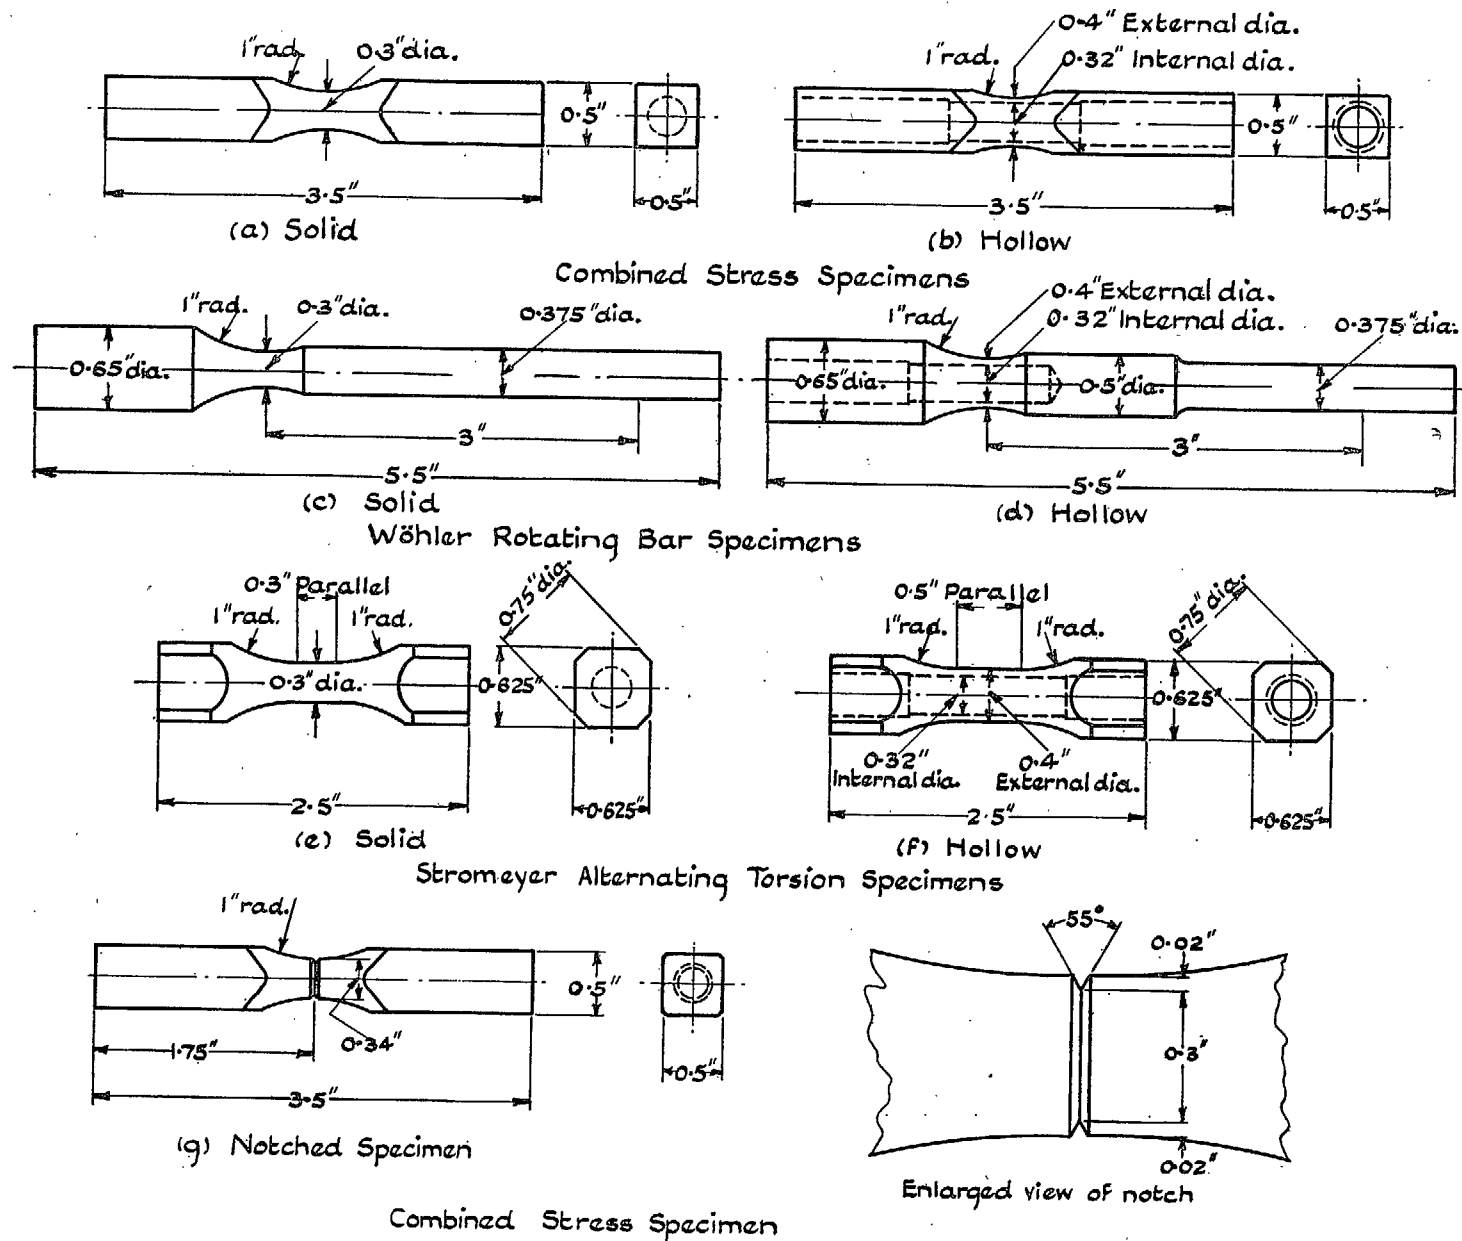 1"rad.
0·3"dia.
0·5"
3·5"
0·5"
(a) Solid
0·4" External dia.
1"rad.
0·32" Internal dia.
0·5"
3·5"
0·5"
(b) Hollow
Combined Stress Specimens
1"rad.
0·3"dia.
0·375"dia.
0·65"dia.
3"
5·5"
(c) Solid
0·4"External dia.
1"rad.
0·32"Internal dia.
0·375"dia.
0·65"dia.
0·5"dia.
3"
5·5"
(d) Hollow
Wöhler Rotating Bar Specimens
0·3" Parallel
1"rad.
1"rad.
0·75"dia.
0·3"dia.
0·625"
2·5"
0·625"
(e) Solid
0·5" Parallel
1"rad.
1"rad.
0·75"dia.
0·625"
0·32"
Internal dia.
0·4"
External dia.
2·5"
0·625"
(f) Hollow
Stromeyer Alternating Torsion Specimens
1"rad.
0·5"
0·34"
1·75"
3·5"
0·5"
(g) Notched Specimen
55°
0·02"
0·3"
0·02"
Enlarged view of notch
Combined Stress Specimen